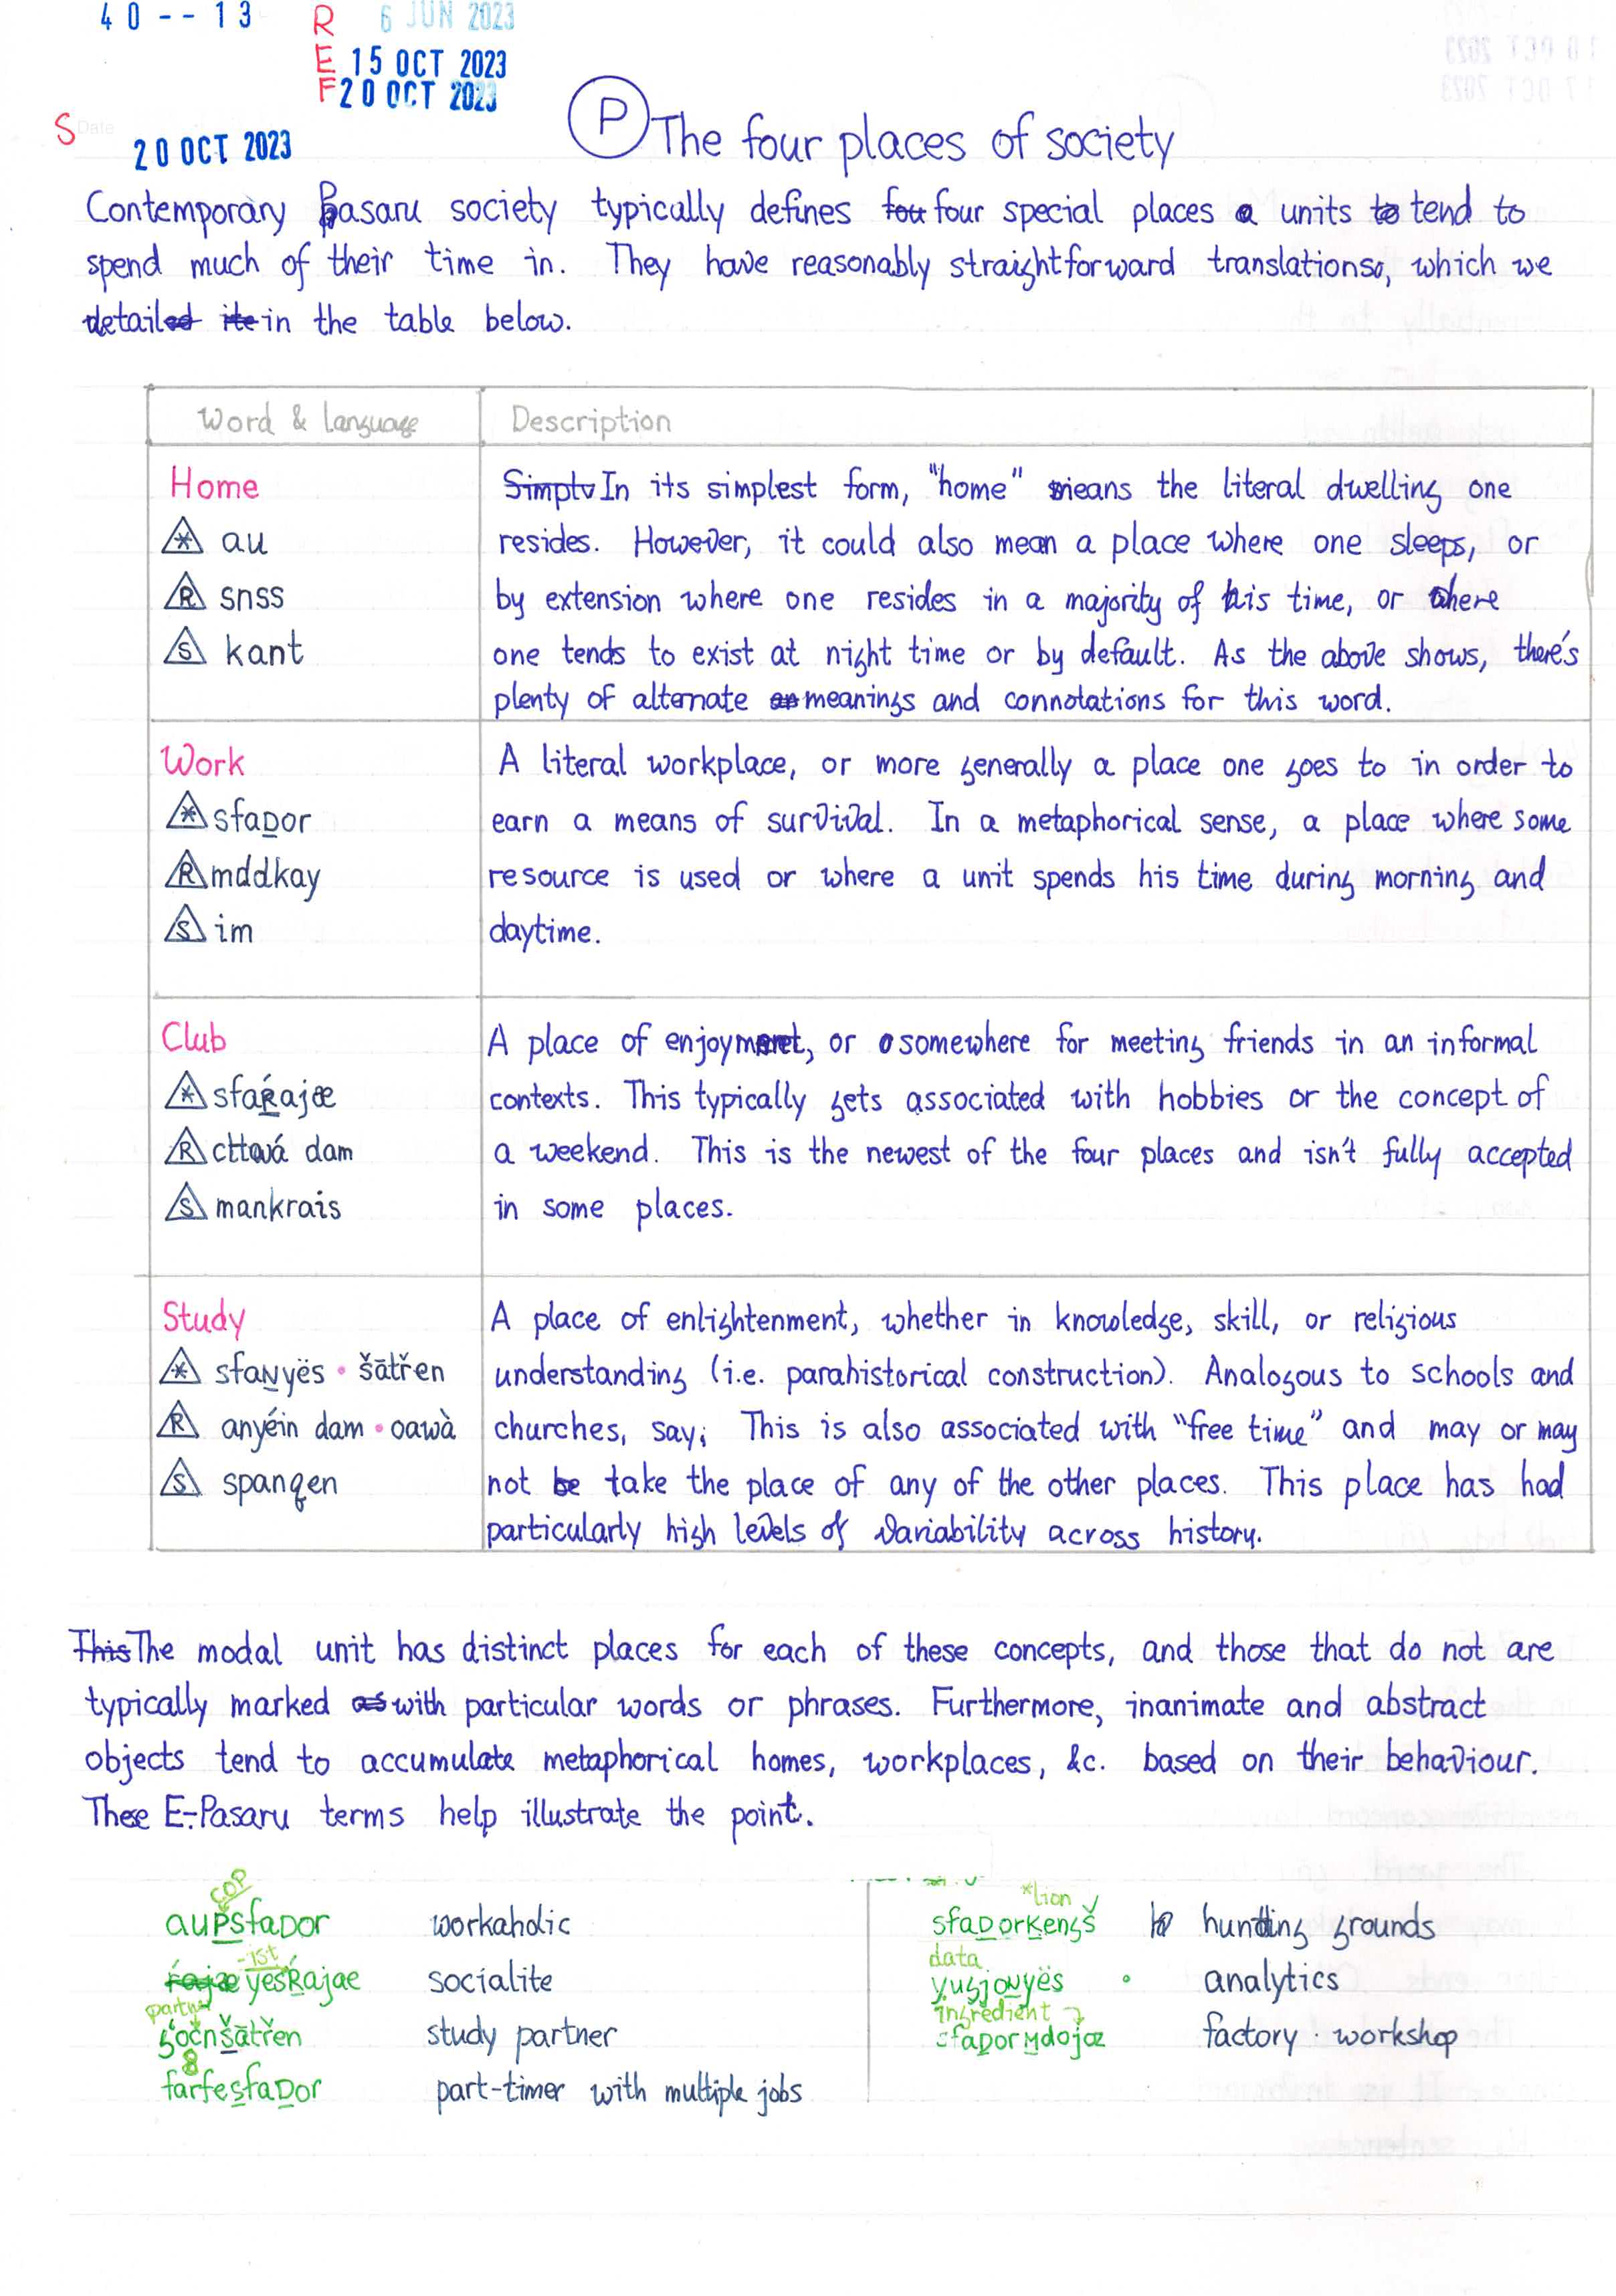 40 -- 13
R 6 JUN 2023
E 15 OCT 2023
F 20 OCT 2023
S Date 20 OCT 2023
P The four places of society
Contemporary Pasaru society typically defines four special places a units tend to
spend much of their time in. They have reasonably straightforward translations, which we
detail in the table below.
Word & language Description
Home
* au
R snss
S kant
In its simplest form, "home" means the literal dwelling one
resides. However, it could also mean a place where one sleeps, or
by extension where one resides in a majority of his time, or where
one tends to exist at night time or by default. As the above shows, there's
plenty of alternate meanings and connotations for this word.
Work
* sfaDor
R mddkay
S im
A literal workplace, or more generally a place one goes to in order to
earn a means of survival. In a metaphorical sense, a place where some
resource is used or where a unit spends his time during morning and
daytime.
Club
* sfaŔajæ
R cttavá dam
S mankrais
A place of enjoyment, or somewhere for meeting friends in an informal
contexts. This typically gets associated with hobbies or the concept of
a weekend. This is the newest of the four places and isn't fully accepted
in some places.
Study
* sfaNyës • šātřen
R anyéin dam • oawà
S spanqen
A place of enlightenment, whether in knowledge, skill, or religious
understanding (i.e. parahistorical construction). Analogous to schools and
churches, say; This is also associated with "free time" and may or may
not take the place of any of the other places. This place has had
particularly high levels of variability across history.
The modal unit has distinct places for each of these concepts, and those that do not are
typically marked with particular words or phrases. Furthermore, inanimate and abstract
objects tend to accumulate metaphorical homes, workplaces, &c. based on their behaviour.
These E-Pasaru terms help illustrate the point.
COP
auPSfaDor workaholic
-ist
yesŔajae socialite
partner
góčnšātřen study partner
8
farfesfaDor part-timer with multiple jobs
*lion
sfaDorKengš hunting grounds
data
yugjoNyës analytics
ingredient
sfaDorMdojæ factory · workshop